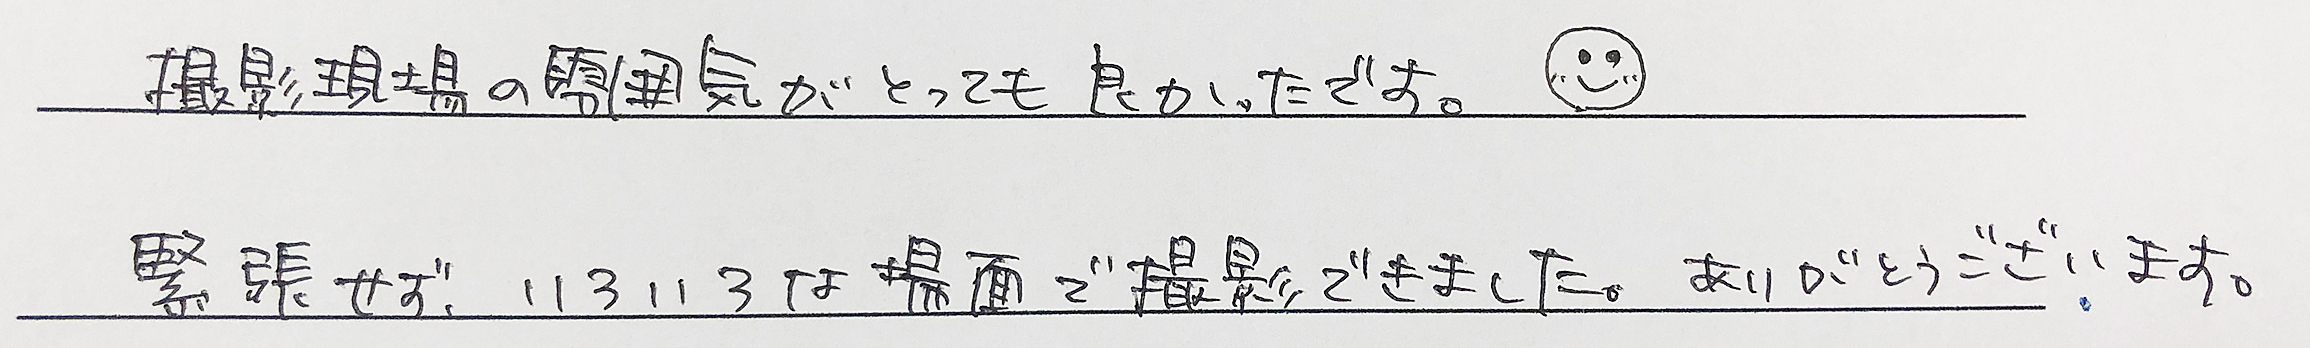 撮影現場の雰囲気がとっても良かったです。
緊張せず、いろいろな場面で撮影できました。ありがとうございます。